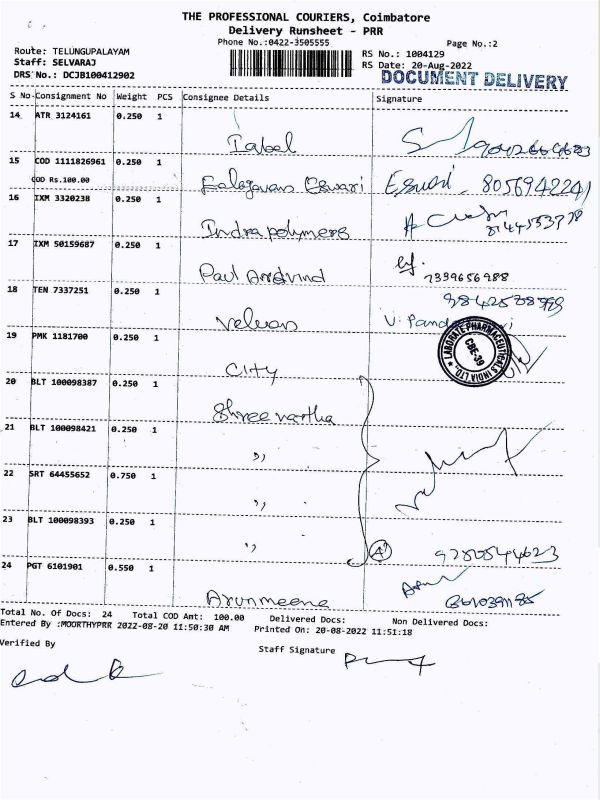 THE PROFESSIONAL COURIERS, Coimbatore
Delivery Runsheet - PRR
Phone No.:0422-3505555
Page No.:2
Route: TELUNGUPALAYAM
RS No.: 1004129
Staff: SELVARAJ
RS Date: 20-Aug-2022
DRS No.: DCJB100412902
DOCUMENT DELIVERY
S No Consignment No Weight PCS Consignee Details Signature
14 ATR 3124161 0.250 1
15 COD 1111826961 0.250 1
COD Rs.100.00
Eswari
16 IXM 3320238 0.250 1
Indra polymers
17 IXM 50159687 0.250 1
Paul Aravind
7339656988
18 TEN 7337251 0.250 1
Velvan
19 PMK 1181700 0.250 1
City
LABORATE PHARMACEUTICALS INDIA LTD.,
CBE-39
20 BLT 100098387 0.250 1
Shree vartha
21 BLT 100098421 0.250 1
,,
22 SRT 64455652 0.750 1
,,
23 BLT 100098393 0.250 1
,,
A
24 PGT 6101901 0.550 1
Arunmeena
Total No. Of Docs: 24 Total COD Amt: 100.00 Delivered Docs: Non Delivered Docs:
Entered By :MOORTHYPRR 2022-08-20 11:50:30 AM Printed On: 20-08-2022 11:51:18
Verified By
Staff Signature